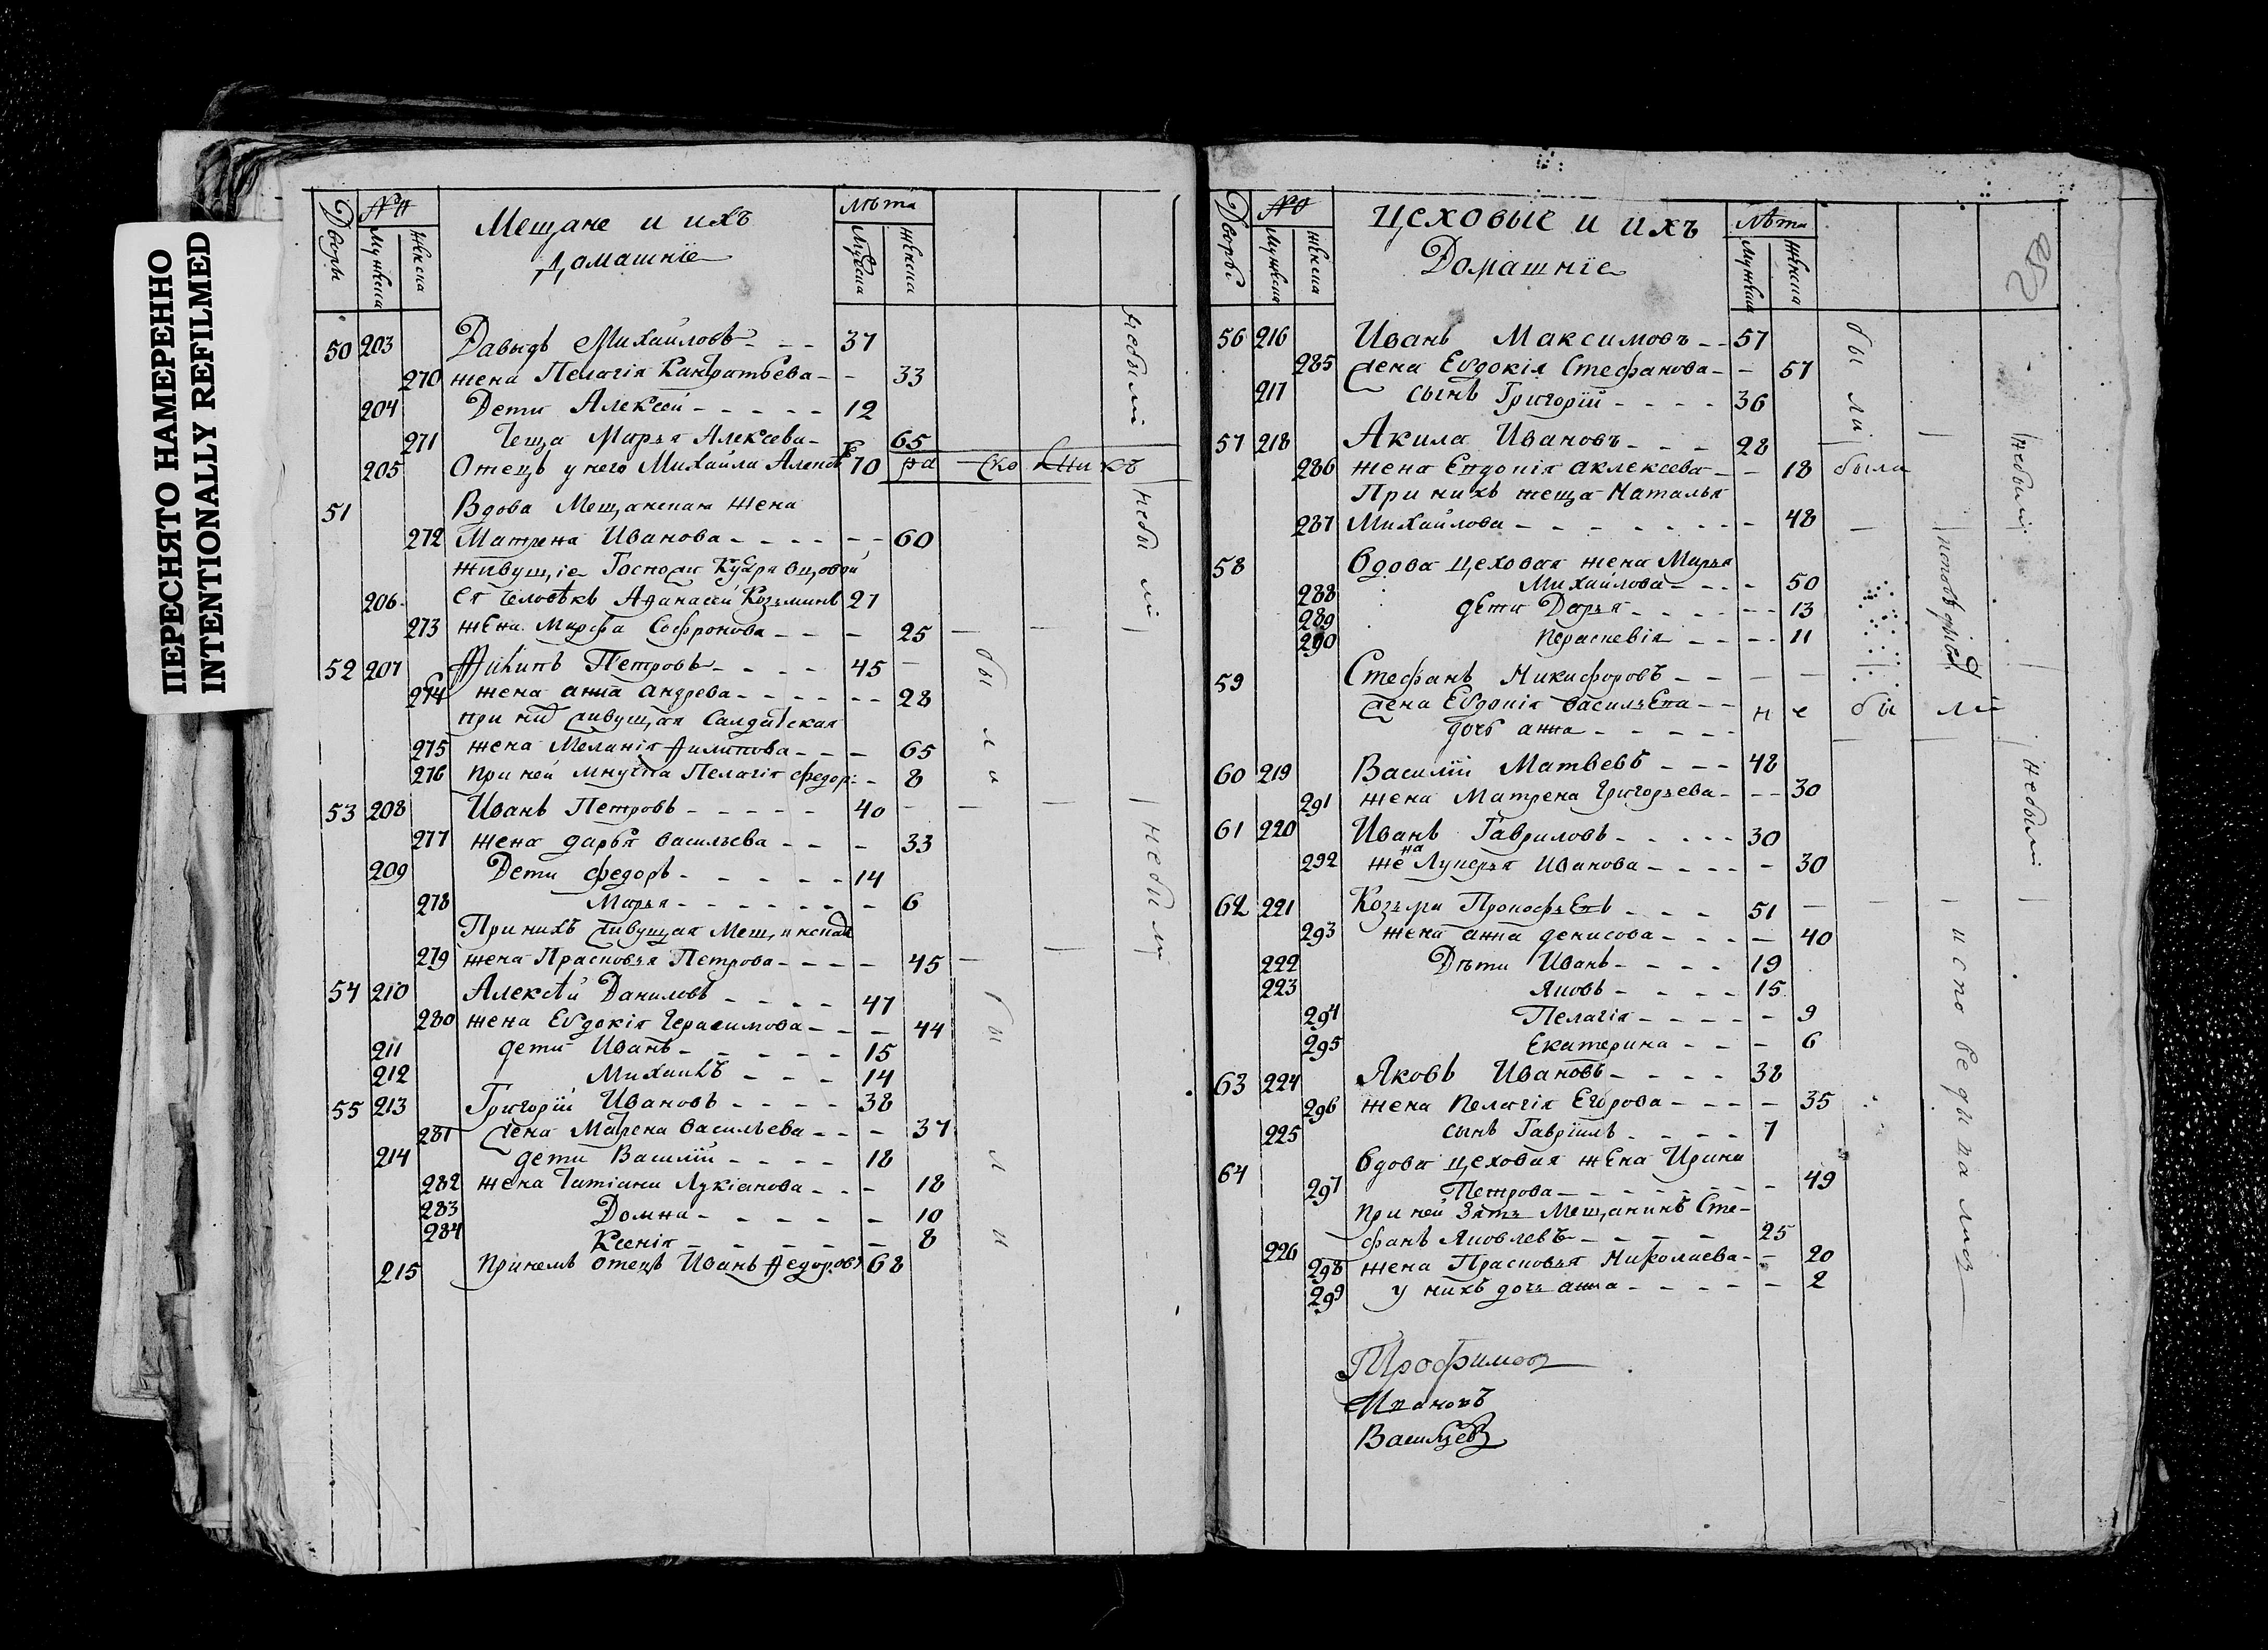 ПЕРЕСНЯТО НАМЕРЕННО
INTENTIONALLY REFILMED
Дворы № Мужеска Женска Мещане и ихъ Домашніе Лѣта Мужеска Женска
50 203 Давыдъ Михайловъ 37
270 жена Пелагія Кандратьева 33
204 Дети Алексей 12
271 Теща Марья Алексева 65
205 Отецъ у него Михайла 70
не были
51 Вдова Мещанская жена
272 Матрена Иванова 60
живущіе Госпожи
206 Ея человѣкъ Афанасей Козьминъ 27
273 жена Марфа Софронова 25
не были
52 207 Никита Петровъ 45
274 жена анна андрева 28
при них живущая Салдатская
275 жена Меланія Филипова 65
276 при ней внучка Пелагія федор: 8
были
53 208 Иванъ Петровъ 40
277 жена дарья васильева 33
209 Дети федоръ 14
278 Марья 6
При нихъ живущая Мещанская
279 жена Прасковья Петрова 45
не были
54 210 Алексѣй Даниловъ 47
280 жена Евдокія Герасимова 44
211 дети Иванъ 15
212 Михаилъ 14
55 213 Григорій Ивановъ 38
281 жена Матрена васильева 37
214 дети Василій 18
282 жена Татіана Лукіанова 18
283 Домна 10
284 Ксенія 8
215 При немъ отецъ Иванъ Федоровъ 68
были
Дворы № Мужеска Женска Цеховые и ихъ Домашніе Лѣта Мужеска Женска
56 216 Иванъ Максимовъ 57
285 жена Евдокія Стефанова 57
217 сынъ Григорій 36
были
57 218 Акила Ивановъ 28
286 жена Евдокія алексеева 18 была
При нихъ теща Наталья
287 Михайлова 48
не были
58 вдова цеховая жена Марья
288 Михайлова 50
289 дети Дарья 13
290 Параскевія 11
59 Стефанъ Никифоровъ
жена Евдокія васильева не были
дочь анна
60 219 Василій Матвеевъ 48
291 жена Матрена Григорьева 30
61 220 Иванъ Гавриловъ 30
292 жена Лукерья Иванова 30
не были
62 221 Козьма Прокофьевъ 51
293 жена анна денисова 40
222 Дѣти Иванъ 19
223 Яковъ 15
294 Пелагія 9
295 Екатерина 6
63 224 Яковъ Ивановъ 38
296 жена Пелагія Егорова 35
225 сынъ Гавріилъ 7
64 вдова цеховая жена Ирина
297 Петрова 49
при ней Зять Мещанинъ Сте-
226 фанъ Яковлевъ 25
298 жена Прасковья Николаева 20
299 у нихъ дочь анна 2
Трофимовъ
Ивановъ
Васильевъ